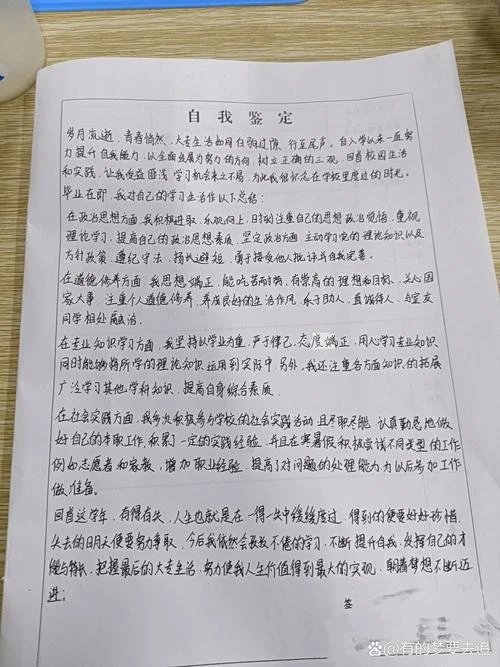 自我鉴定
岁月流逝，青春悄然，大专生活如同白驹过隙，行至尾声。自入学以来一直努
力提升自我能力，以全面发展为努力的方向，树立正确的三观，回首校园生活
和实践，让我受益匪浅，学习机会来之不易，为此我很怀念在学校里度过的时光。
毕业在即，我对自己的学习生活作以下总结：
在政治思想方面，我积极进取，乐观向上，时刻注重自己的思想政治觉悟，重视
理论学习，提高自己的政治思想素质，坚定政治方面，主动学习党的理论知识以及
方针政策，遵纪守法，扬长避短，勇于接受他人批评与自我完善。
在道德修养方面，我思想端正，能吃苦而耐劳，有崇高的理想和目标，关心国
家大事，注重个人道德修养，养成良好的生活作风，乐于助人，真诚待人，与室友
同学相处融洽。
在专业知识学习方面，我坚持以学业为重，严于律己，态度端正，用心学习专业知识
同时能够将所学的理论知识运用到实际中，另外，我还注重各方面知识的拓展
广泛学习其他学科知识，提高自身综合素质。
在社会实践方面，我多次积极参与学校的社会实践活动且尽职尽能，认真勤恳地做
好自己的本职工作，积累了一定的实践经验，并且在寒暑假积极尝试不同类型的工作
例如志愿者和家教，增加职业经验，提高了对问题的处理能力，为以后参加工作
做准备。
回首这学年，有得有失，人生也就是在一得一失中缓缓度过，得到的便要好好珍惜，
失去的明天便要努力争取，今后我依然会孜孜不倦的学习，不断提升自我，发挥自己的才
能与特长，把握最后的大专生活，努力使我人生价值得到最大的实现，朝着梦想不断迈
进；
签
百家号/有的梦要去追